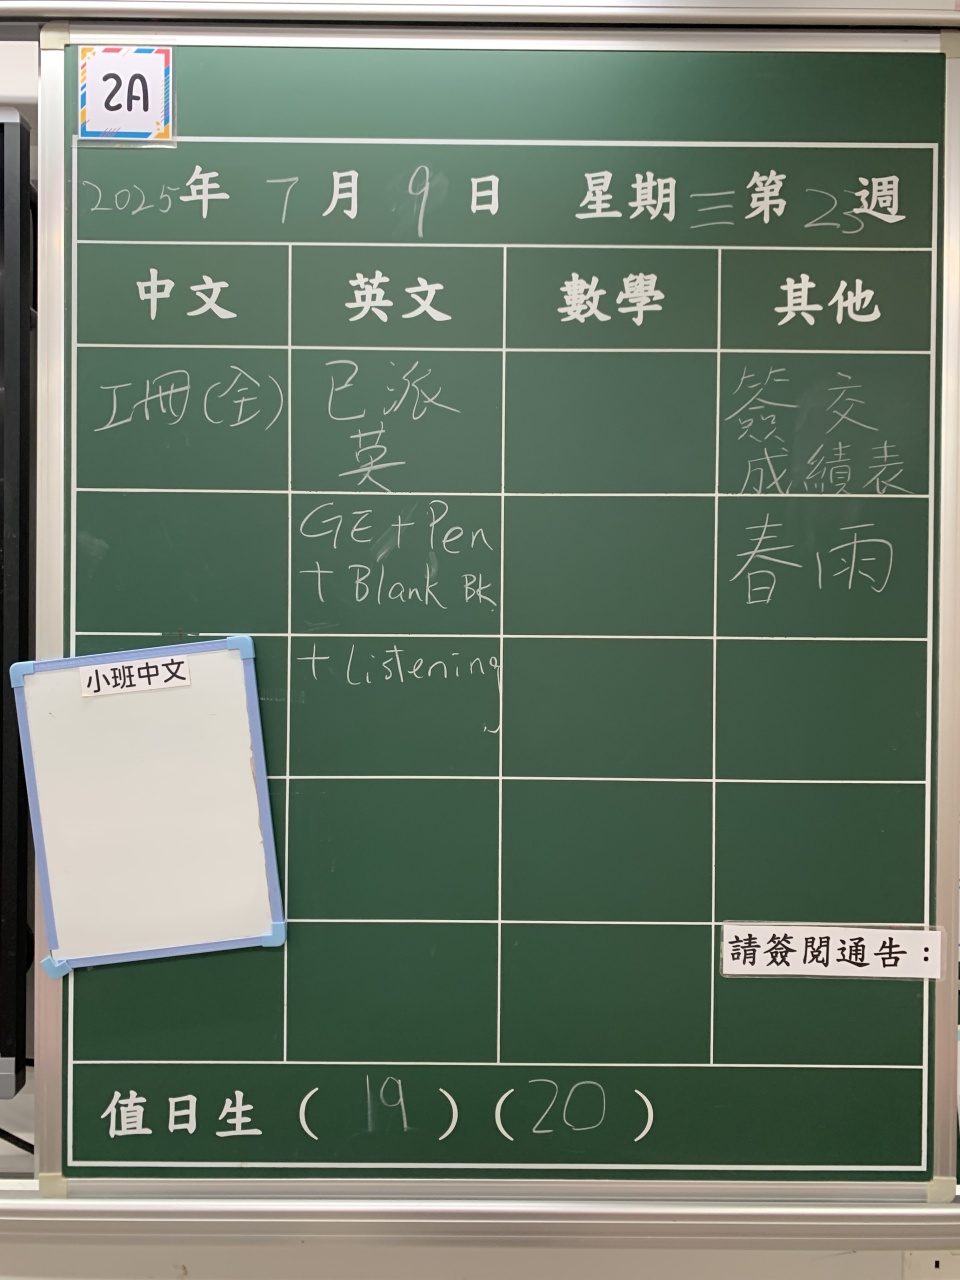 2A
2025年 7月 9日 星期三第23週
中文 英文 數學 其他
工冊(全)
已派
英
GE + Pen
+ Blank BK
+ Listening
簽交
成績表
春雨
小班中文
請簽閱通告：
值日生 ( 19 ) ( 20 )